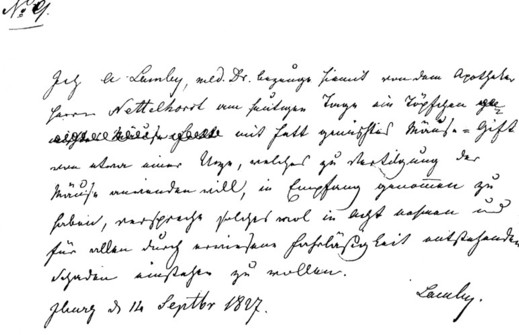 No 9.
Ich A Lamby, med. Dr. bezeuge hiemit von dem Apotheker
Herrn Nettelhorst am heutigen Tage ein Töpfchen
mit Fett gemischtes Mäuse-Gift
von etwa einer Unze, welches zu Vertilgung der
Mäuse anwenden will, in Empfang genommen zu
haben, verspreche solches wol in Acht nehmen und
für allen durch erwiesene Fahrläsigkeit entstehenden
Schaden einstehen zu wollen.
Iburg d 14 Septbr 1827.
Lamby.